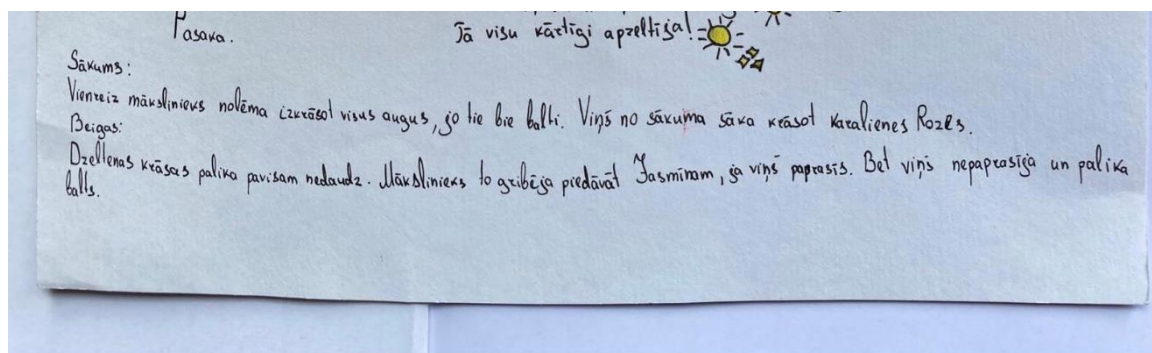 Pasaka.
Tā visu kārtīgi apzeltīja!
Sākums:
Vienreiz mākslinieks nolēma izkrāsot visus augus, jo tie bie balti. Viņš no sākuma sāka krāsot Karalienes Rozes.
Beigas:
Dzeltenas krāsas palika pavisam nedaudz. Mākslinieks to gribēja piedāvāt Jasmīnam, ja viņš paprasīs. Bet viņš nepaprasīja un palika
balts.